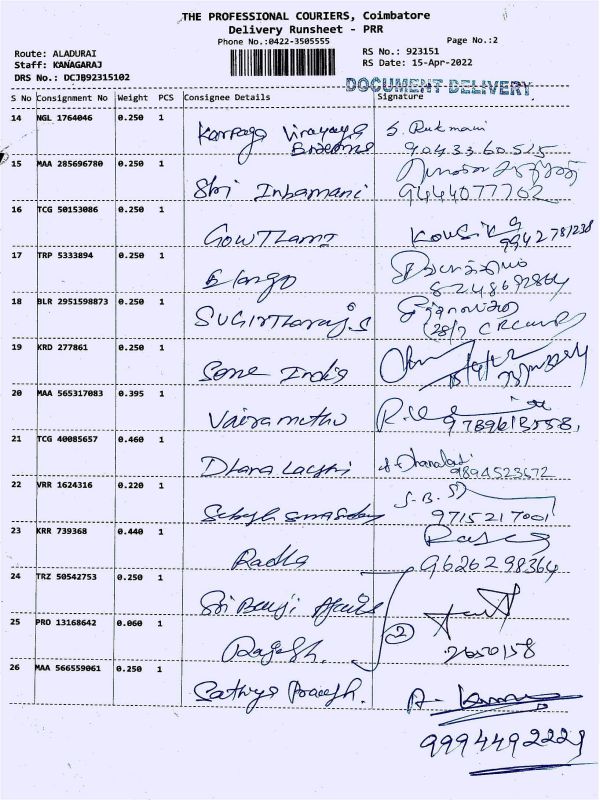 THE PROFESSIONAL COURIERS, Coimbatore
Delivery Runsheet - PRR
Phone No.:0422-3505555
Page No.:2
Route: ALADURAI
Staff: KANAGARAJ
DRS No.: DCJB92315102
RS No.: 923151
RS Date: 15-Apr-2022
DOCUMENT DELIVERY
S No Consignment No Weight PCS Consignee Details Signature
14 NGL 1764046 0.250 1 S. Rukmani
9043360515
15 MAA 285696780 0.250 1 Shri Inbamani
9444077762
16 TCG 50153086 0.250 1 GOWTHAMI KOUSIK
9942781238
17 TRP 5333894 0.250 1 Elango
8248692864
18 BLR 2951598873 0.250 1 SUGIRTHARAJ.S
19 KRD 277861 0.250 1 Some India
20 MAA 565317083 0.395 1 Vairamuthu
21 TCG 40085657 0.460 1 Dhanalakshmi
9894523672
22 VRR 1624316 0.220 1 S.B.
9715217001
23 KRR 739368 0.440 1 Radha
9626298364
24 TRZ 50542753 0.250 1 Sri
25 PRO 13168642 0.060 1 Rajesh. 2
2650158
26 MAA 566559061 0.250 1 Sathya
9994492229